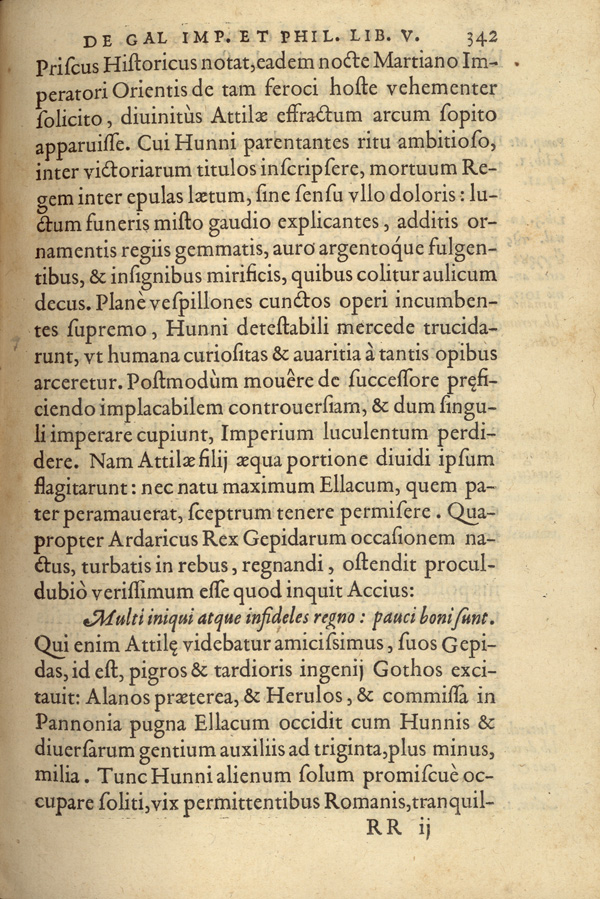 DE GAL IMP. ET PHIL. LIB. V. 342
Priſcus Hiſtoricus notat,eadem nocte Martiano Im-
peratori Orientis de tam feroci hoſte vehementer
ſolicito, diuinitùs Attilæ effractum arcum ſopito
apparuiſſe. Cui Hunni parentantes ritu ambitioſo,
inter victoriarum titulos inſcripſere, mortuum Re-
gem inter epulas lætum, ſine ſenſu vllo doloris: lu-
ctum funeris miſto gaudio explicantes, additis or-
namentis regiis gemmatis, auro argentoq́ue fulgen-
tibus, & inſignibus mirificis, quibus colitur aulicum
decus. Planè veſpillones cunctos operi incumben-
tes ſupremo, Hunni deteſtabili mercede trucida-
runt, vt humana curioſitas & auaritia à tantis opibus
arceretur. Poſtmodùm mouêre de ſucceſſore pręfi-
ciendo implacabilem controuerſiam, & dum ſingu-
li imperare cupiunt, Imperium luculentum perdi-
dere. Nam Attilæ filij æqua portione diuidi ipſum
flagitarunt: nec natu maximum Ellacum, quem pa-
ter peramauerat, ſceptrum tenere permiſere. Qua-
propter Ardaricus Rex Gepidarum occaſionem na-
ctus, turbatis in rebus, regnandi, oſtendit procul-
dubiò veriſſimum eſſe quod inquit Accius:
Multi iniqui atque infideles regno: pauci boni ſunt.
Qui enim Attilę videbatur amiciſsimus, ſuos Gepi-
das, id eſt, pigros & tardioris ingenij Gothos exci-
tauit: Alanos præterea, & Herulos, & commiſſa in
Pannonia pugna Ellacum occidit cum Hunnis &
diuerſarum gentium auxiliis ad triginta,plus minus,
milia. Tunc Hunni alienum ſolum promiſcuè oc-
cupare ſoliti,vix permittentibus Romanis,tranquil-
RR ij